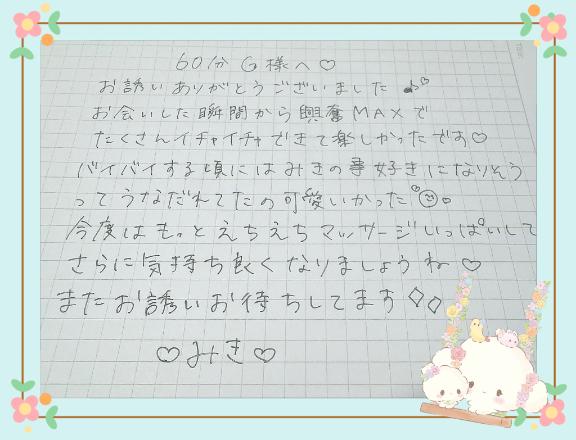 60分 G様へ♡
お誘いありがとうございました♪♡
お会いした瞬間から興奮MAXで
たくさんイチャイチャできて楽しかったです♡
バイバイする頃にはみきの事好きになりそう
ってうなだれてたの可愛いかった
今度はもっとえちえちマッサージいっぱいして
さらに気持ち良くなりましょうね♡
またお誘いお待ちしてます◇◇
♡みき♡